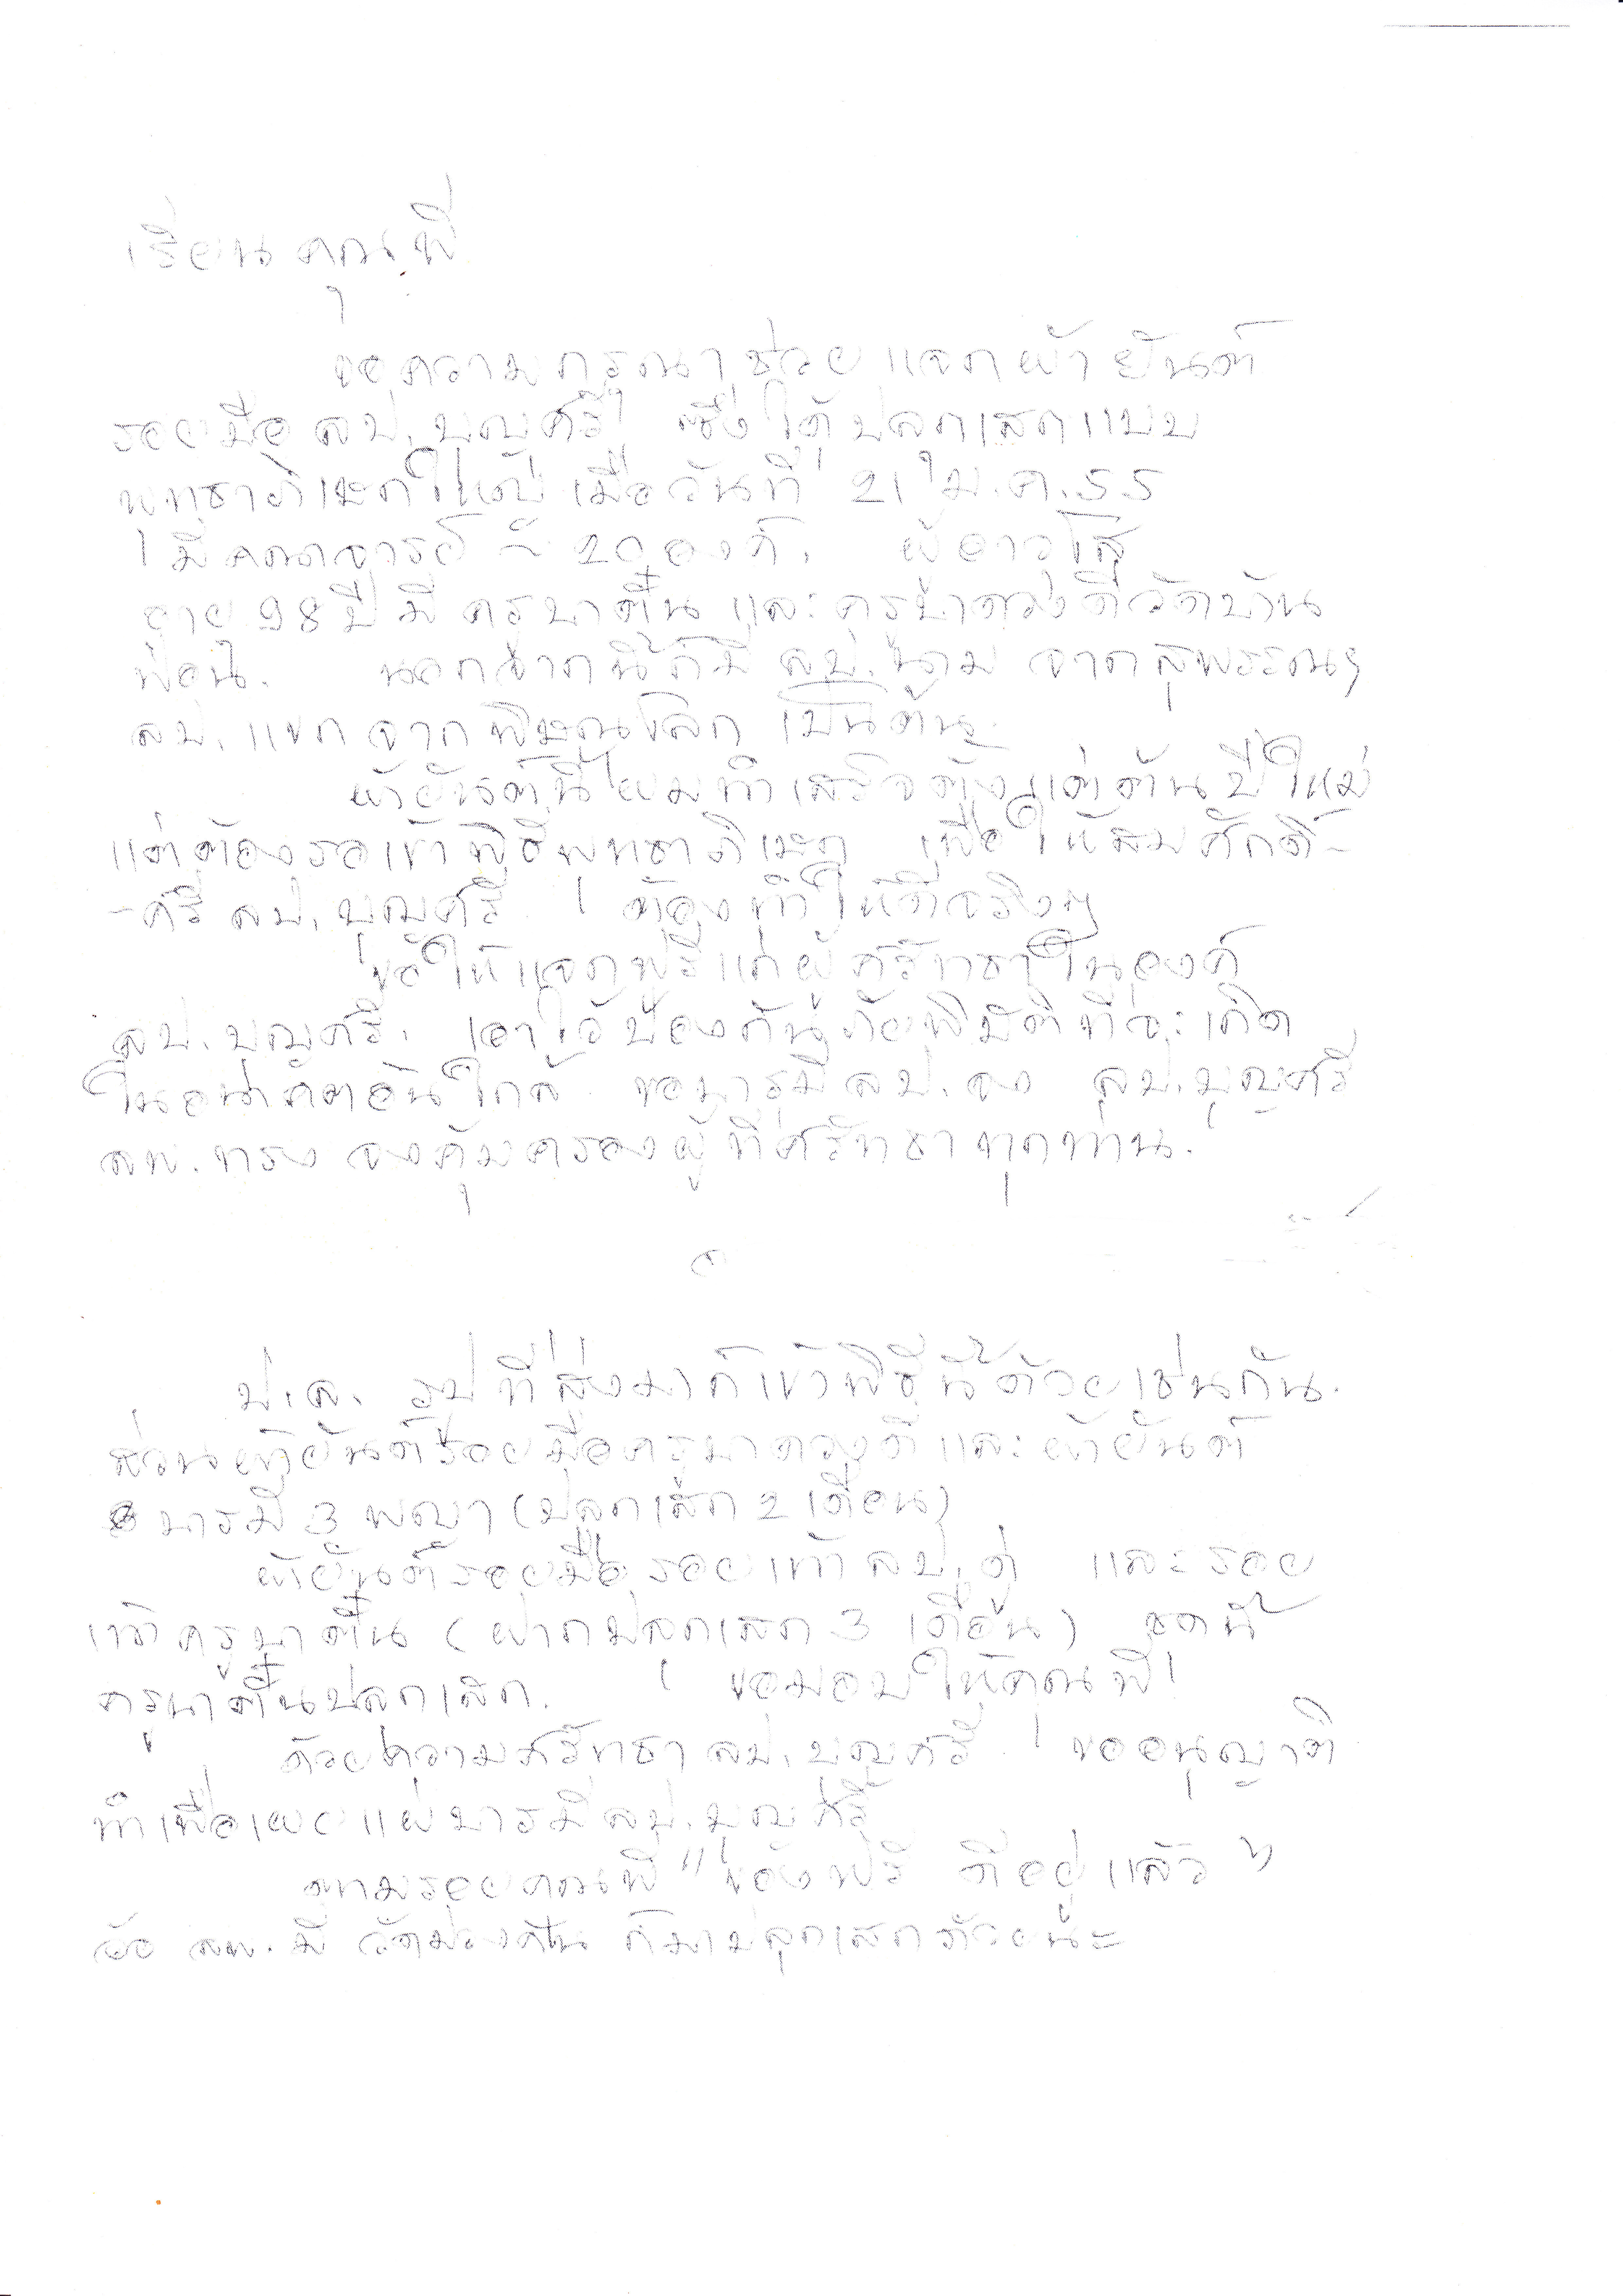 เรียน คุณพี่
ขอความกรุณาช่วยแจกผ้ายันต์
รอยมือ ลป. บุญศรี ซึ่งได้ปลุกเสกแบบ
พุทธาภิเษกใหญ่ เมื่อวันที่ 21 ม.ค. 55
มีคณาจารย์ ~ 20 องค์. ผู้อาวุโส
อายุ 98 ปี มี ครูบาตั๋น และครูบาดวงดี วัดบ้าน
ฟ่อน. นอกจากนี้ก็มี ลป. จาก สุพรรณฯ
ลป. แขก จาก พิษณุโลก เป็นต้น.
ผ้ายันต์นี้ผมทำเสร็จตั้งแต่ต้นปีใหม่
แต่ต้องรอเข้าพิธีพุทธาภิเษก เพื่อให้สมศักดิ์-
-ศรี ลป. บุญศรี ต้องทำให้ดีจริงๆ
ขอให้แจกฟรีแก่ผู้ศรัทธาในองค์
ลป. บุญศรี. เอาไว้ป้องกันภัยพิบัติที่จะเกิด
ในอนาคตอันใกล้ ขอบารมี ลป. ลป. บุญศรี
ลพ. ทรง จงคุ้มครองผู้ที่ศรัทธาทุกท่าน.
ป.ล. รูปที่ส่งมาก็เข้าพิธีนี้ด้วยเช่นกัน.
ส่วนผ้ายันต์รอยมือครูบาดวงดีและผ้ายันต์
บารมี 3 พญา (ปลุกเสก 2 เดือน)
ผ้ายันต์รอยมือรอยเท้า ลป. และรอย
เท้าครูบาตั๋น (ฝากปลุกเสก 3 เดือน) ชุดนี้
ครูบาตั๋นปลุกเสก. ขอมอบให้คุณพี่
ด้วยความศรัทธา ลป. บุญศรี ขออนุญาติ
ทำเพื่อเผยแผ่บารมี ลป. บุญศรี
ตามรอยคุณพี่ "ของฟรี ดีอยู่แล้ว"
ลพ. มี ก็มาปลุกเสกด้วยนะ